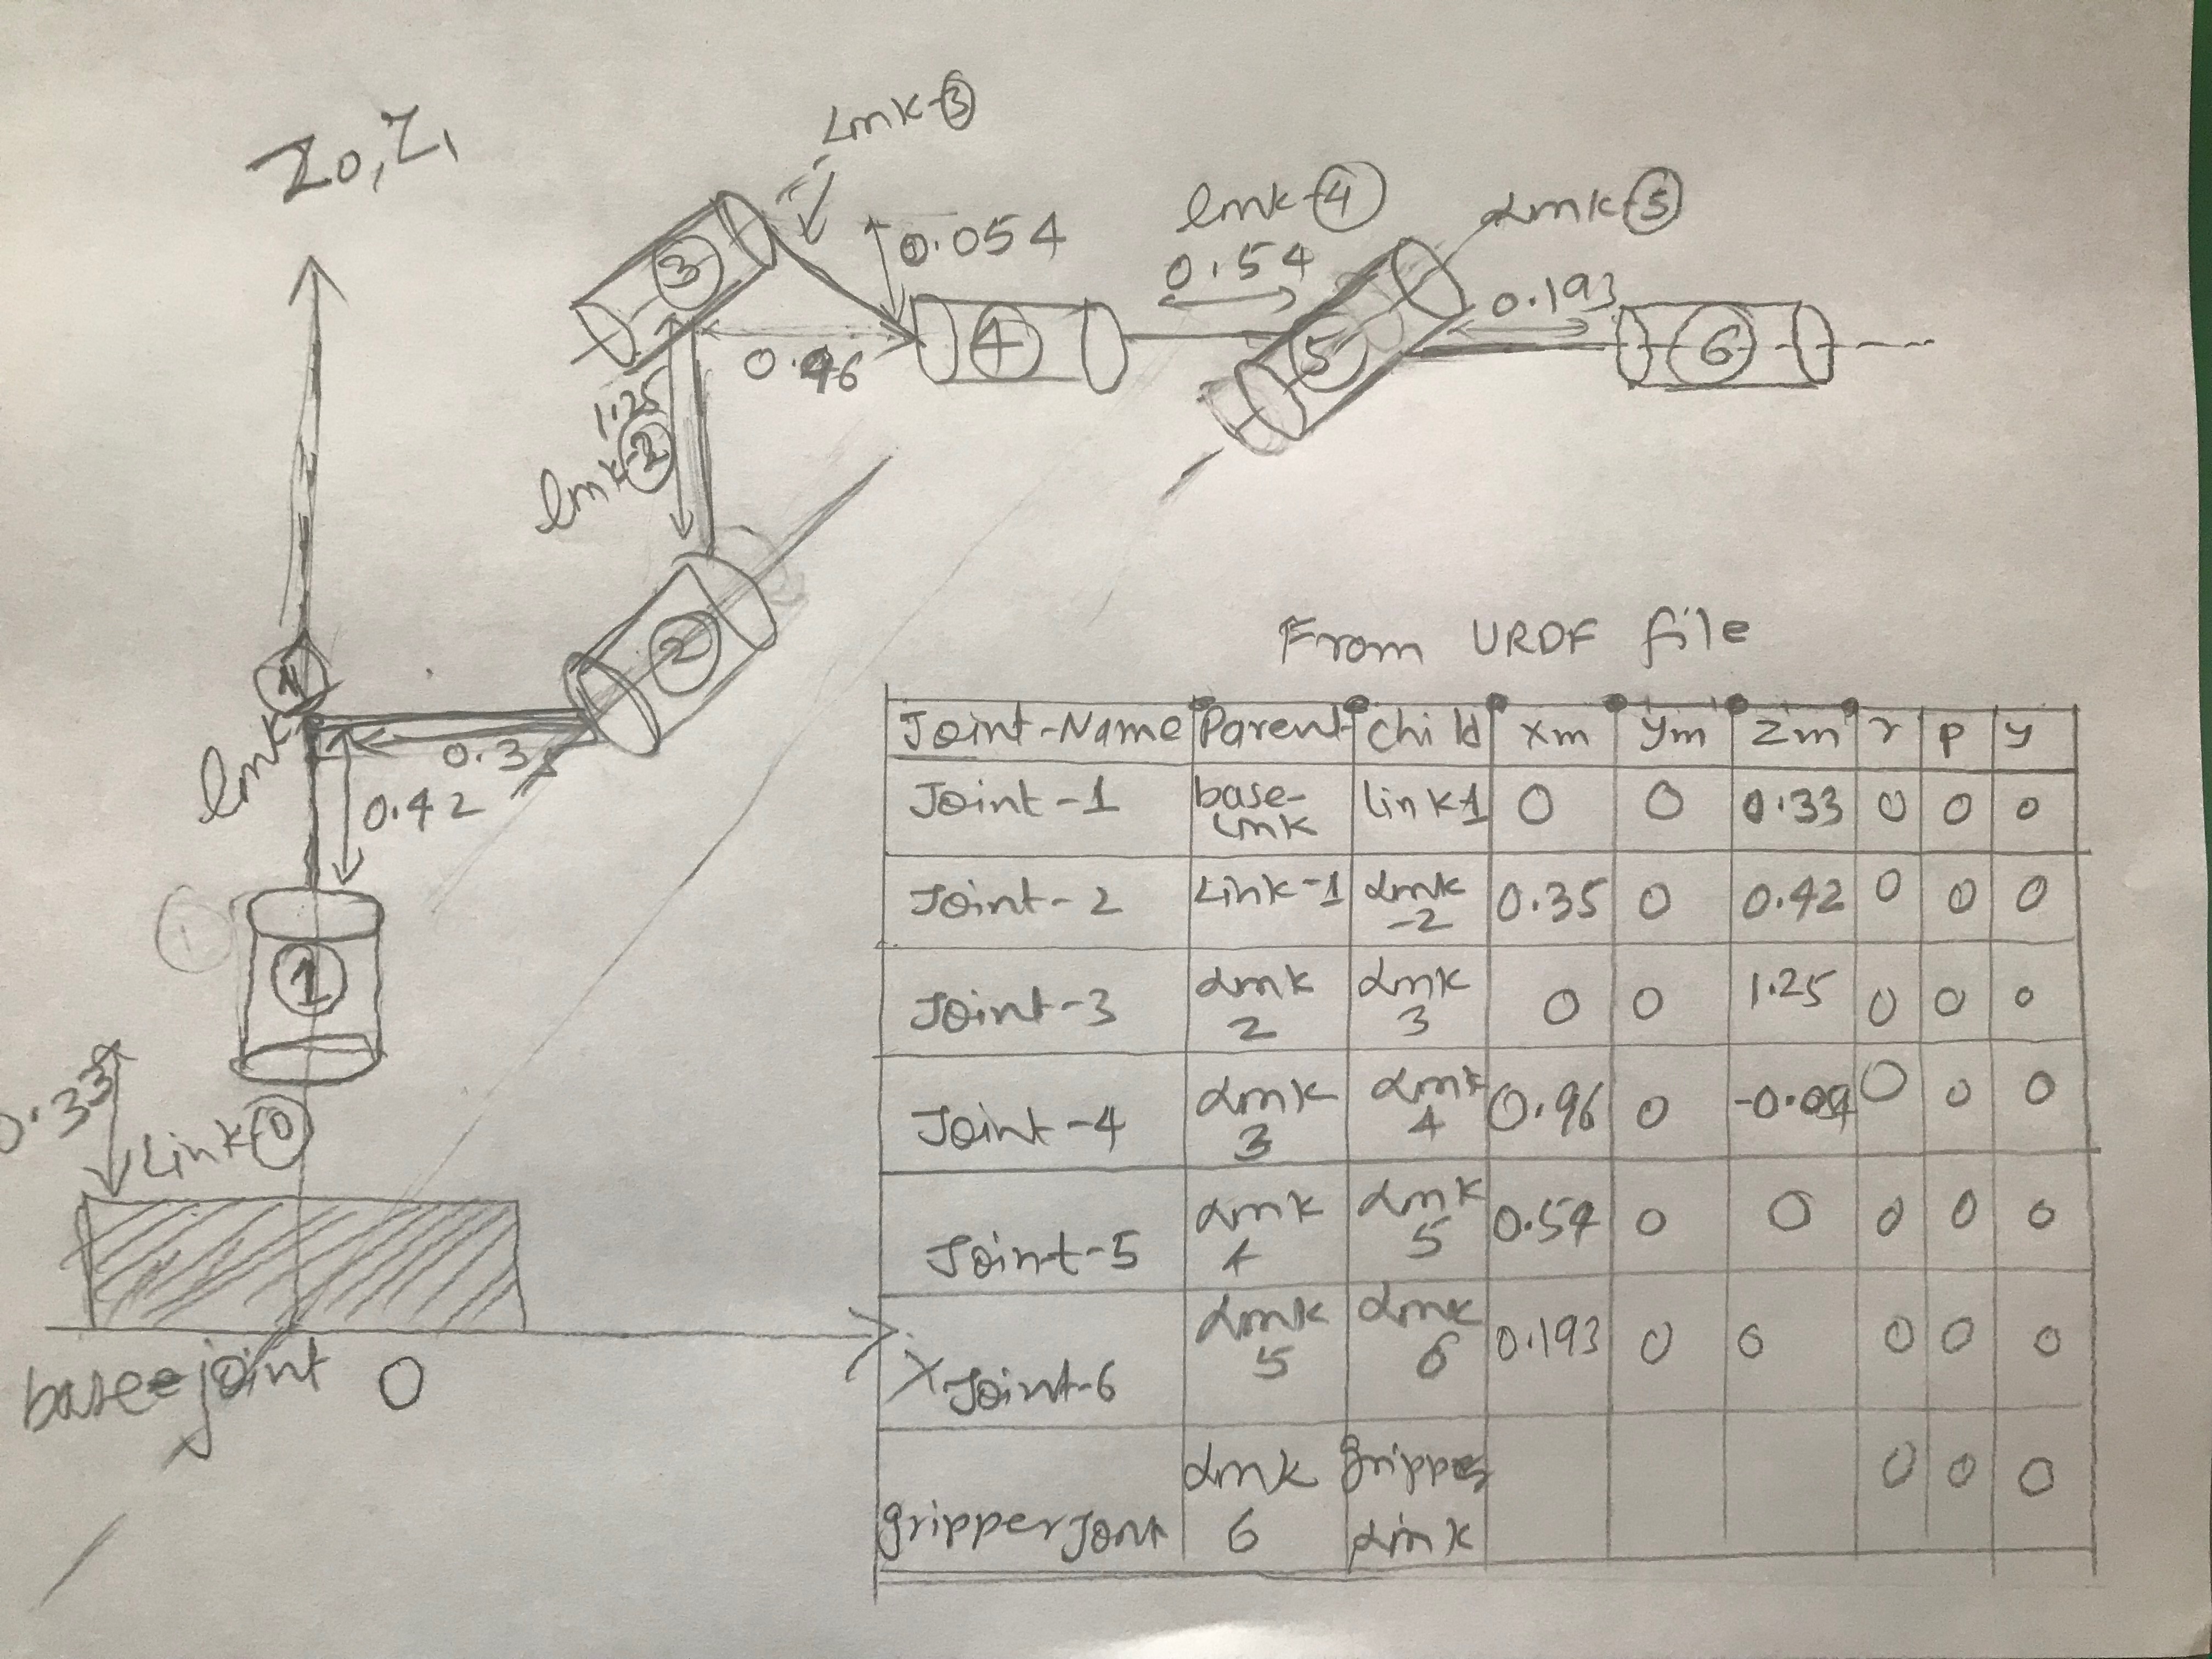 Z0, Z1
Link ③
0.054
link ④
0.54
link ⑤
0.193
③
④
⑤
⑥
1.25
link ②
0.96
②
link ①
0.35
0.42
①
0.33
Link ⓪
base joint
0
X
From URDF file
Joint-Name Parent child xm ym zm r p y
Joint-1 base-link link1 0 0 0.33 0 0 0
Joint-2 Link-1 link-2 0.35 0 0.42 0 0 0
Joint-3 link 2 link 3 0 0 1.25 0 0 0
Joint-4 link 3 link 4 0.96 0 -0.054 0 0 0
Joint-5 link 4 link 5 0.54 0 0 0 0 0
Joint-6 link 5 link 6 0.193 0 0 0 0 0
gripper joint link 6 gripper link 0 0 0